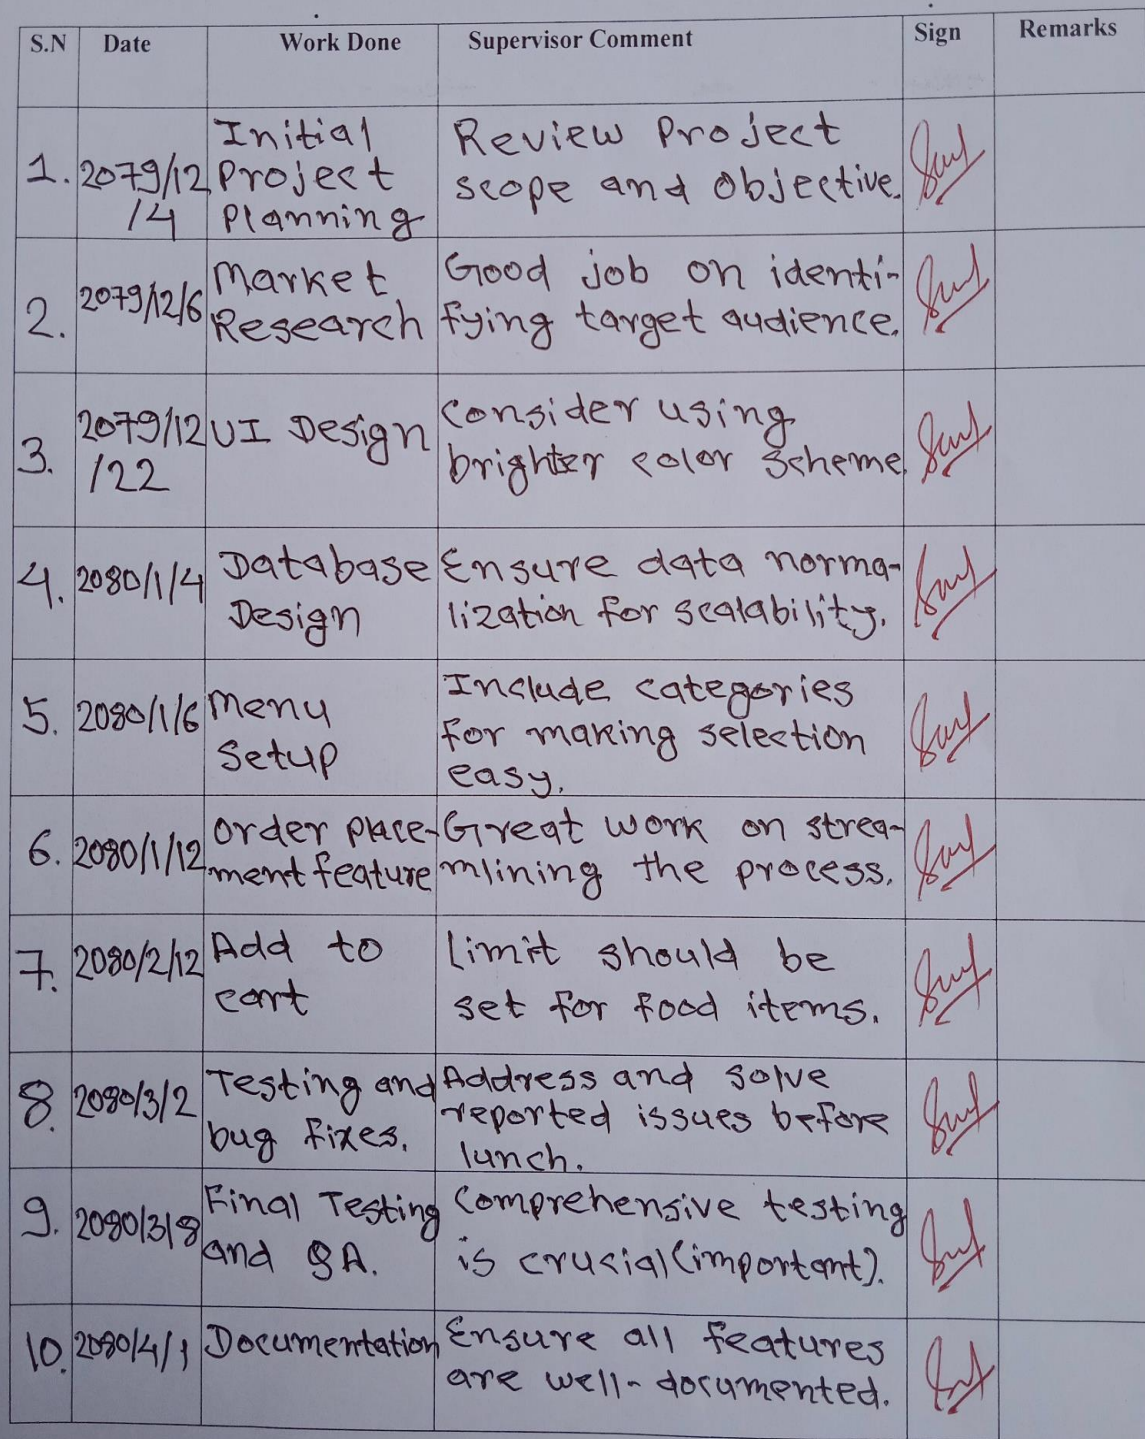 S.N Date Work Done Supervisor Comment Sign Remarks
1. 2079/12
/4
Initial
Project
Planning
Review Project
scope and Objective.
2. 2079/12/6
Market
Research
Good job on identi-
fying target audience.
3. 2079/12
/22
UI Design
Consider using
brighter color scheme
4. 2080/1/4
Database
Design
Ensure data norma-
lization for scalability.
5. 2080/1/6
Menu
Setup
Include categories
for making selection
easy.
6. 2080/1/12
Order place-
ment feature
Great work on strea-
mlining the process.
7. 2080/2/12
Add to
cart
Limit should be
set for food items.
8. 2080/3/2
Testing and
bug fixes.
Address and solve
reported issues before
lunch.
9. 2080/3/8
Final Testing
and QA.
Comprehensive testing
is crucial (important).
10. 2080/4/1
Documentation
Ensure all features
are well-documented.